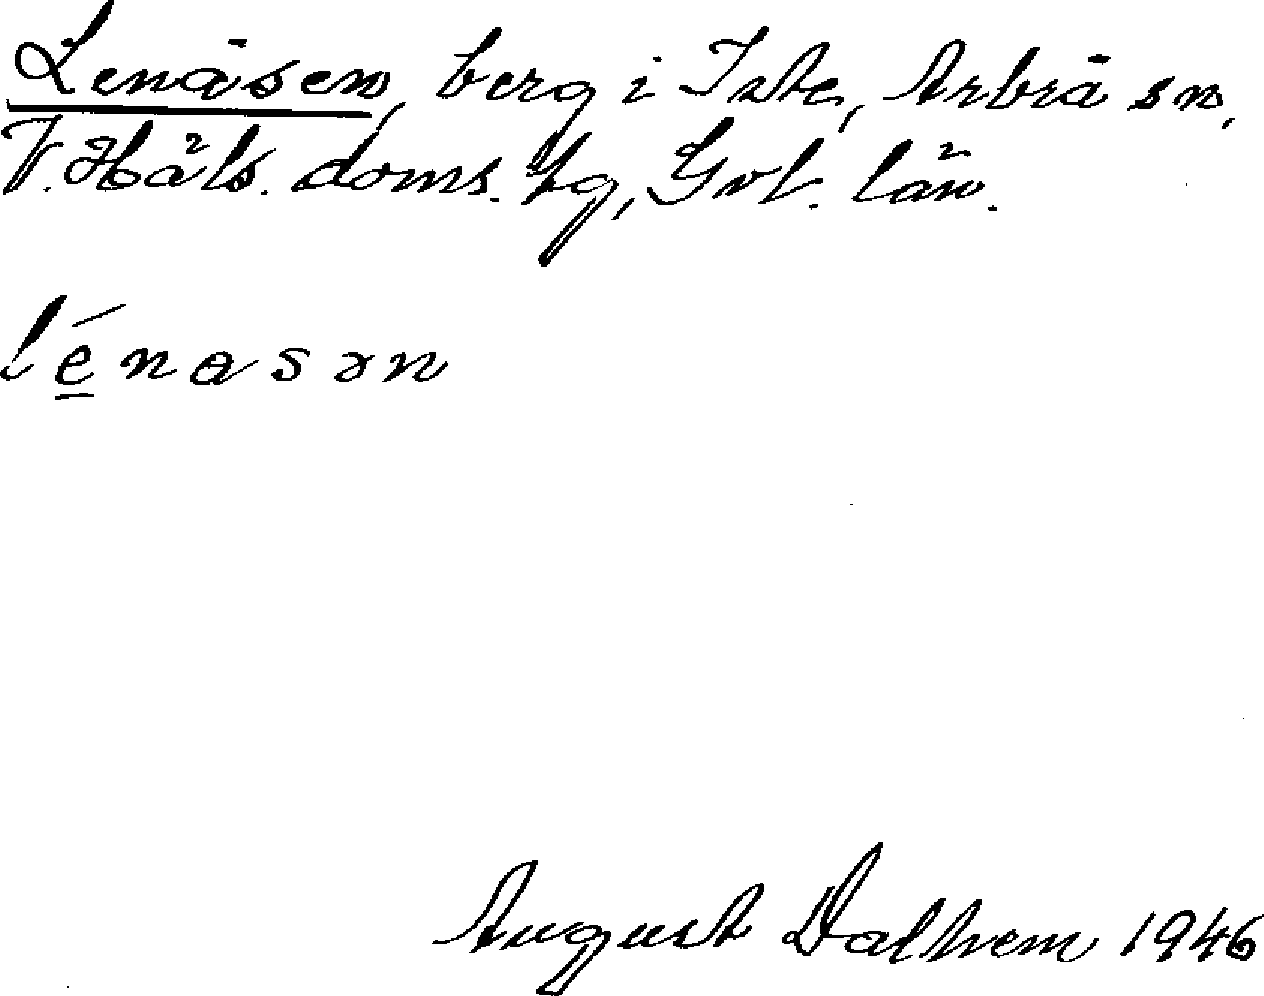 Lenåsen, berg i Iste, Arbrå sn,
V. Häls. doms. hg, Gvl. län.
lénasən
August Dalhem 1946